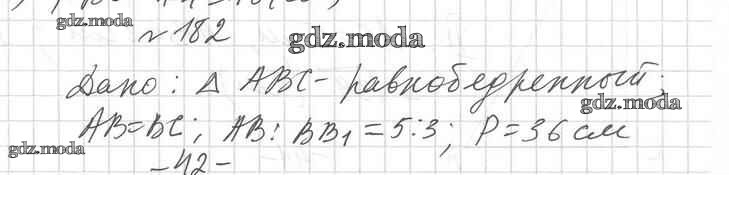 gdz.moda
№ 182
gdz.moda
Дано: Δ ABC - равнобедренный;
gdz.moda
AB=BC; AB:BB₁=5:3; P=36 см
gdz.moda
-42-